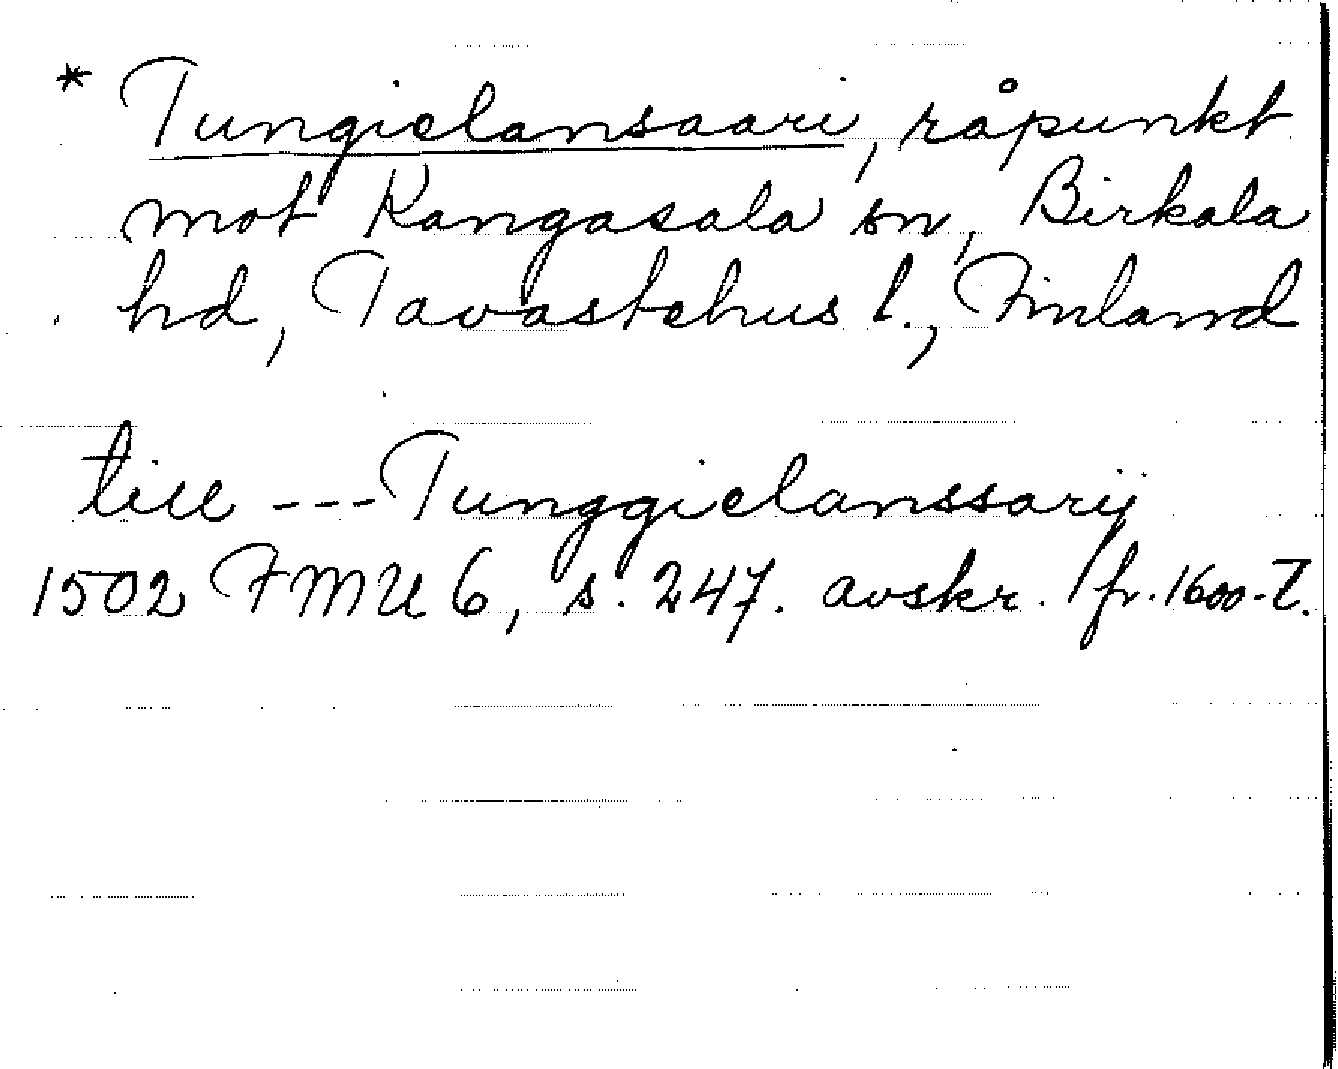 * Tungielansaari, råpunkt
mot Kangasala sn, Birkala
hd, Tavastehus l., Finland
till --- Tunggielanssarij
1502 FMU 6, s. 247. avskr. fr. 1600-t.